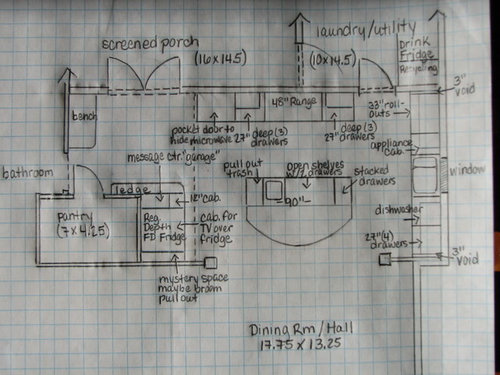 screened porch
(16x14.5)
laundry/utility
(10x14.5)
Drink
Fridge
Recycling
3"
void
bench
48" Range
33" roll-
outs
pocket door to
hide microwave
27" deep (3)
drawers
27" deep (3)
drawers
appliance
cab.
message ctr. "garage"
pull out
trash
open shelves
w/2 drawers
stacked
drawers
window
bathroom
ledge
12" cab.
90"
pantry
(7x4.25)
Reg.
Depth
FD Fridge
cab. for
TV over
fridge
dishwasher
27"(4)
drawers
3"
void
mystery space
maybe broom
pull out
Dining Rm / Hall
17.75 x 13.25